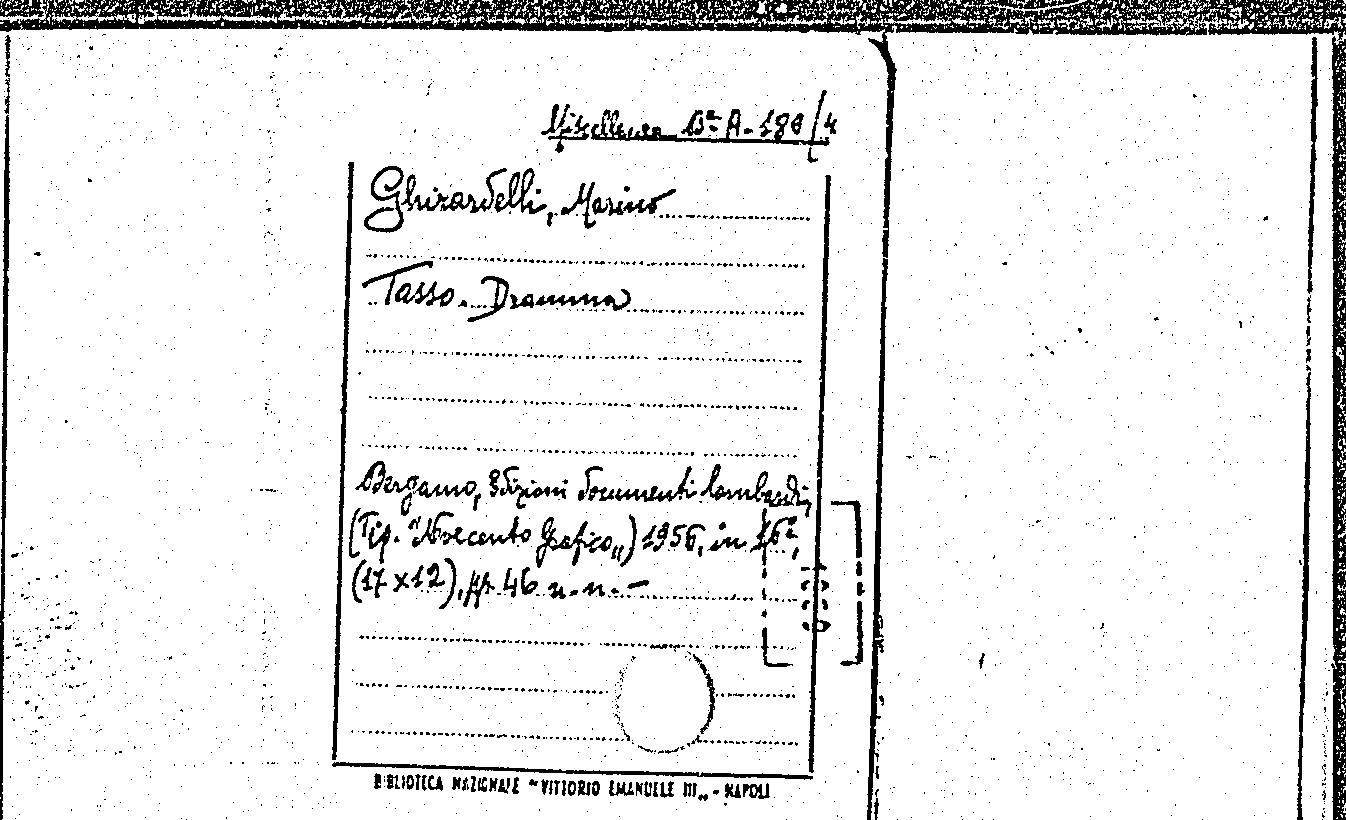 Miscellanea Bª A-180/4
Ghirardelli, Marino
Tasso. Dramma
Bergamo, Edizioni documenti lombardi,
(Tip. "Novecento Grafico„) 1956, in 16º,
(17 x 12), pp. 46 n.n. –
BIBLIOTECA NAZIONALE "VITTORIO EMANUELE III„ - NAPOLI